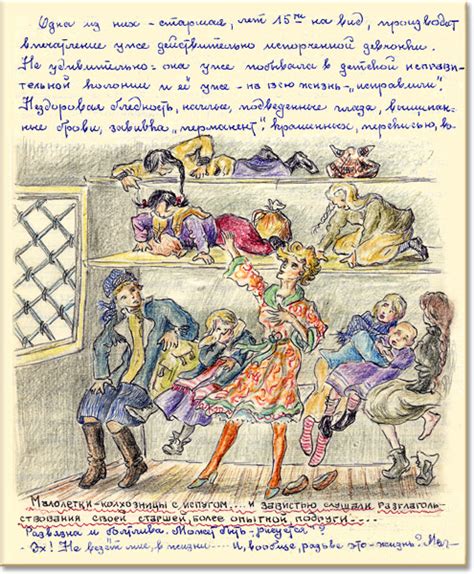 Одна из них - старшая, лет 15ти на вид, производит
впечатление уже действительно испорченной девчонки.
Не удивительно: она уже побывала в детской исправи-
тельной колонии и её уже - на всю жизнь - "исправили".
Нездоровая бледность, наглые, подведенные глаза, выщипан-
ные брови, завивка "перманент" крашенных, перекисью, во-
Малолетки-колхозницы с испугом... и завистью слушали разглаголь-
ствования своей старшей, более опытной подруги....
Развязна и болтлива. Может быть - рисуется?
- Эх! Не везёт мне, в жизни... И, вообще, разве это - жизнь? Мы-